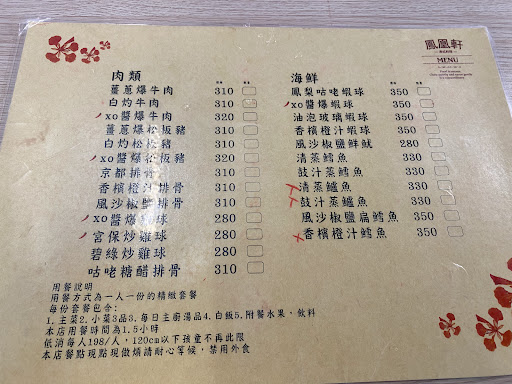 鳳凰軒
MENU
肉類
薑蔥爆牛肉 310
白灼牛肉 310
xo醬爆牛肉 320
薑蔥爆松板豬 310
白灼松板豬 310
xo醬爆松板豬 320
京都排骨 310
香檳橙汁排骨 310
風沙椒鹽排骨 310
xo醬爆雞球 280
宮保炒雞球 280
碧綠炒雞球 280
咕咾糖醋排骨 310
海鮮
鳳梨咕咾蝦球 350
xo醬爆蝦球 350
油泡玻璃蝦球 350
香檳橙汁蝦球 350
風沙椒鹽鮮魷 280
清蒸鱈魚 330
豉汁蒸鱈魚 330
清蒸鱸魚 330
豉汁蒸鱸魚 330
風沙椒鹽扁鱈魚 350
香檳橙汁鱈魚 350
用餐說明
用餐方式為一人一份的精緻套餐
每份套餐包含:
1.主菜2.小菜3品3.每日主廚湯品4.白飯5.附餐水果,飲料
本店用餐時間為1.5小時
低消每人198/人,120cm以下孩童不再此限
本店餐點現點現做煩請耐心等候,禁用外食